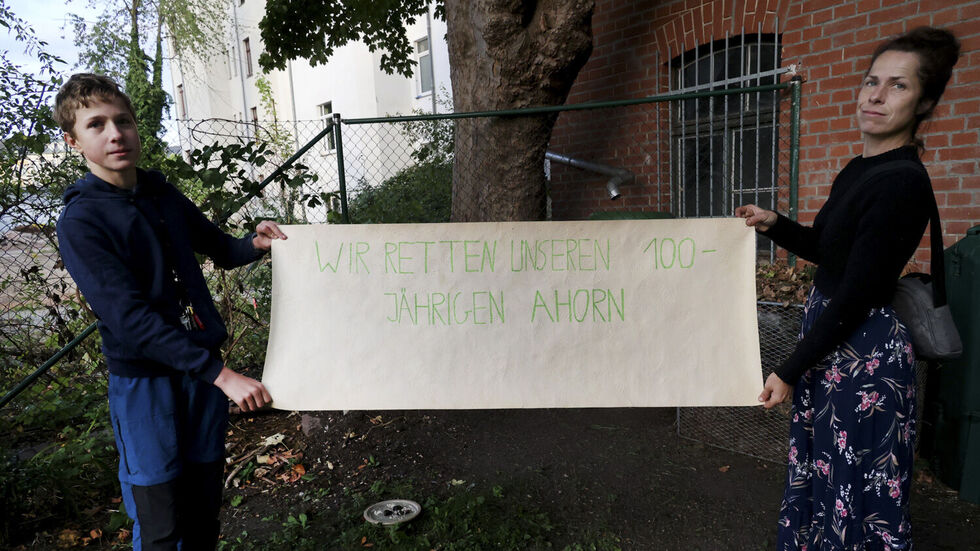 WIR RETTEN UNSEREN 100-
JÄHRIGEN AHORN